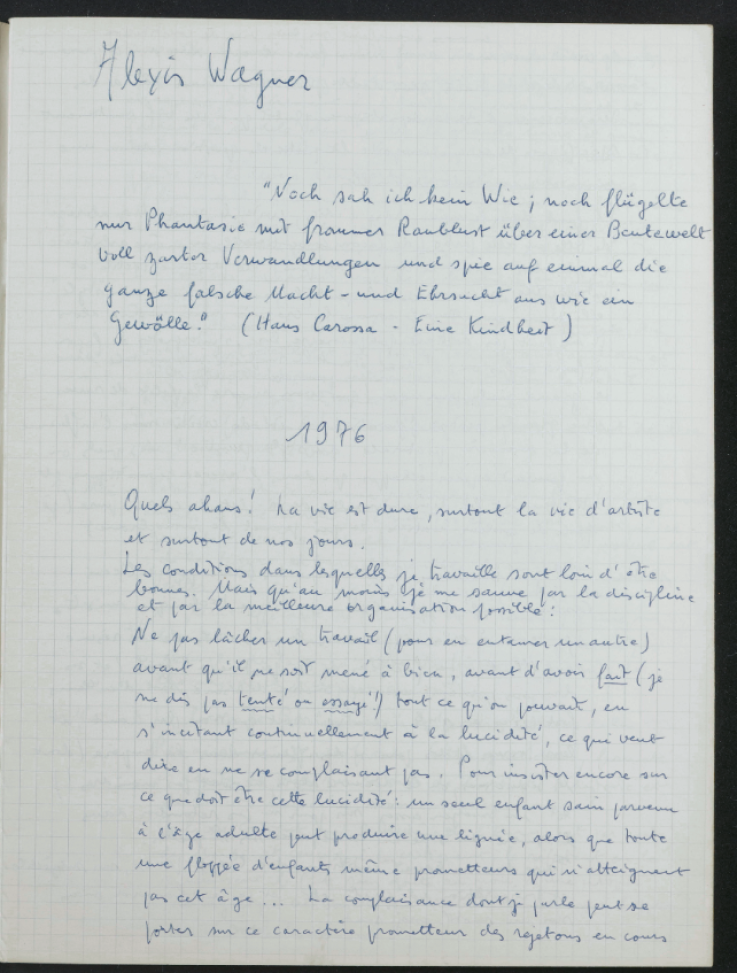 Alexis Wagner
"Noch sah ich kein Wie ; noch flügelte
nur Phantasie mit frommer Raublust über einer Beutewelt
voll zarter Verwandlungen und spie auf einmal die
ganze falsche Macht - und Ehrsucht aus wie ein
Gewölle." (Hans Carossa - Eine Kindheit)
1976
Quels ahans! La vie est dure, surtout la vie d'artiste
et surtout de nos jours.
Les conditions dans lesquelles je travaille sont loin d'être
bonnes. Mais qu'au moins je me sauve par la discipline
et par la meilleure organisation possible :
Ne pas lâcher un travail (pour en entamer un autre)
avant qu'il ne soit mené à bien, avant d'avoir fait (je
ne dis pas tenté ou essayé!) tout ce qu'on pouvait, en
s'incitant continuellement à la lucidité, ce qui veut
dire en ne se complaisant pas. Pour insister encore sur
ce que doit être cette lucidité : un seul enfant sain parvenu
à l'âge adulte peut produire une lignée, alors que toute
une flopée d'enfants même prometteurs qui n'atteignent
pas cet âge ... La complaisance dont je parle peut se
porter sur ce caractère prometteur des rejetons en cours